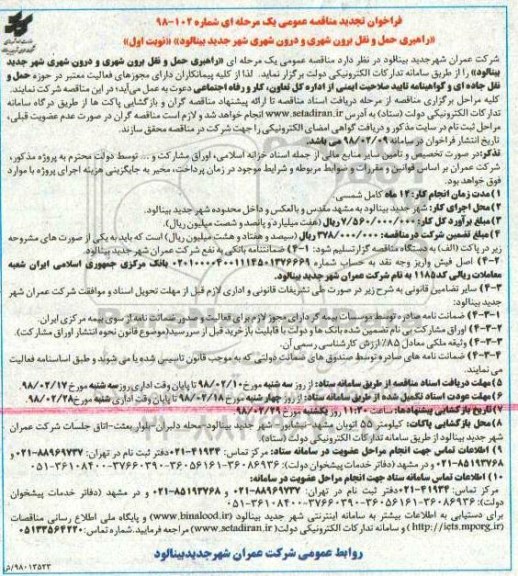 فراخوان تجدید مناقصه عمومی یک مرحله ای شماره ۱۰۲-۹۸
«راهبری حمل و نقل برون شهری و درون شهری شهر جدید بینالود» «نوبت اول»
شرکت عمران شهرجدید بینالود در نظر دارد مناقصه عمومی یک مرحله ای «راهبری حمل و نقل برون شهری و درون شهری شهر جدید
بینالود» را از طریق سامانه تدارکات الکترونیکی دولت برگزار نماید. لذا از کلیه پیمانکاران دارای مجوزهای فعالیت معتبر در حوزه حمل و
نقل جاده ای و گواهینامه تایید صلاحیت ایمنی از اداره کل تعاون، کار و رفاه اجتماعی دعوت به عمل می‌آید؛ در این مناقصه شرکت نمایند.
کلیه مراحل برگزاری مناقصه از مرحله دریافت اسناد مناقصه تا ارائه پیشنهاد مناقصه گران و بازگشایی پاکت ها از طریق درگاه سامانه
تدارکات الکترونیکی دولت (ستاد) به آدرس www.setadiran.ir انجام خواهد شد و لازم است مناقصه گران در صورت عدم عضویت قبلی،
مراحل ثبت نام در سایت مذکور و دریافت گواهی امضای الکترونیکی را جهت شرکت در مناقصه محقق سازند.
تاریخ انتشار فراخوان در سامانه ۹۸/۰۲/۰۹ می باشد.
تذکر: در صورت تخصیص و تامین سایر منابع مالی از جمله اسناد خزانه اسلامی، اوراق مشارکت و ... توسط دولت محترم به پروژه مذکور،
کارفرما بر اساس قوانین و مقررات و ضوابط مربوطه و شرایط موجود در زمان پرداخت، مخیر به جایگزینی هزینه اجرای پروژه با موارد
فوق خواهد بود.
۱) مدت زمان انجام کار: ۱۲ ماه کامل شمسی
۲) محل اجرای کار: شهر جدید بینالود به مشهد مقدس و بالعکس و داخل محدوده شهر جدید بینالود.
۳) مبلغ برآورد کل کار: ۷/۵۶۰/۰۰۰/۰۰۰ ریال (هفت میلیارد و پانصد و شصت میلیون ریال).
۴) مبلغ تضمین شرکت در مناقصه: ۳۷۸/۰۰۰/۰۰۰ ریال (سیصد و هفتاد و هشت میلیون ریال) است که باید به یکی از صورت های مشروحه
زیر در پاکت (الف) به دستگاه مناقصه گزار تسلیم شود: ۱-۴) ضمانتنامه بانکی به نفع شرکت عمران شهر جدید بینالود.
۲-۴) اصل فیش واریز وجه نقد به حساب شماره بانک مرکزی جمهوری اسلامی ایران شعبه
معاملات ریالی کد ۱۱۸۵ به نام شرکت عمران شهر جدید بینالود.
۳-۴) سایر تضامین قانونی به شرح زیر در صورت طی تشریفات قانونی و اداری لازم قبل از مهلت تحویل اسناد و موافقت شرکت عمران شهر
جدید بینالود:
۱-۳-۴) ضمانت نامه صادره توسط موسسات بیمه گر دارای مجوز لازم برای فعالیت و صدور ضمانت نامه از سوی بیمه مرکزی ایران.
۲-۳-۴) اوراق مشارکت بی نام تضمین شده بانک ها و دولت با قابلیت بازخرید قبل از سررسید (موضوع قانون نحوه انتشار اوراق مشارکت).
۳-۳-۴) وثیقه ملکی معادل ۸۵٪ ارزش کارشناسی رسمی آن.
۴-۳-۴) ضمانت نامه های صادره توسط صندوق های ضمانت دولتی که به موجب قانون تاسیس شده یا می شوند و طبق اساسنامه فعالیت
می نمایند.
۵) مهلت دریافت اسناد مناقصه از طریق سامانه ستاد: از روز سه شنبه مورخ ۹۸/۰۲/۱۰ تا پایان وقت اداری روز سه شنبه مورخ ۹۸/۰۲/۱۷.
۶) مهلت عودت اسناد تکمیل شده از طریق سامانه ستاد: از روز چهار شنبه مورخ ۹۸/۰۲/۱۸ تا پایان وقت اداری شنبه مورخ ۹۸/۰۲/۲۸.
۷) تاریخ بازگشایی پیشنهادها: ساعت ۱۱:۳۰ روز یکشنبه مورخ ۹۸/۰۲/۲۹
۸) محل بازگشایی پاکات: کیلومتر ۵۵ اتوبان مشهد-نیشابور- شهر جدید بینالود-محله دلیران-بلوار بعثت-اتاق جلسات شرکت عمران
شهر جدید بینالود از طریق سامانه تدارکات الکترونیکی دولت (ستاد)
۹) اطلاعات تماس جهت انجام مراحل عضویت در سامانه ستاد: مرکز تماس: ۴۱۹۳۴-۰۲۱ دفتر ثبت نام در تهران: ۸۸۹۶۹۷۳۷-۰۲۱ و
۸۵۱۹۳۷۶۸-۰۲۱ و در مشهد (دفاتر خدمات پیشخوان دولت): ۳۶۰۸۶۹۳۶-۳۶۰۵۶۱۶۱-۳۷۶۶۰۳۹۰-۰۵۱-۳۶۱۰۸۴۰۰
۱۰) اطلاعات تماس سامانه ستاد جهت انجام مراحل عضویت در سامانه:
مرکز تماس: ۴۱۹۳۴-۰۲۱ دفتر ثبت نام در تهران: ۸۸۹۶۹۷۳۷-۰۲۱ و ۸۵۱۹۳۷۶۸-۰۲۱ و در مشهد (دفاتر خدمات پیشخوان
دولت): ۳۶۰۸۶۹۳۶-۳۶۰۵۶۱۶۱-۳۷۶۶۰۳۹۰-۰۵۱-۳۶۱۰۸۴۰۰
برای دستیابی به اطلاعات بیشتر به سامانه اینترنتی شهر جدید بینالود (www.binalood.ir) و پایگاه ملی اطلاع رسانی مناقصات
(http://iets.mporg.ir) و سامانه تدارکات الکترونیکی دولت (www.setadiran.ir) مراجعه فرمایید. شماره تماس: ۰۵۱۳۳۵۶۴۲۲۰
روابط عمومی شرکت عمران شهر جدید بینالود
۹۸۰۱۳۵۲۳/ش